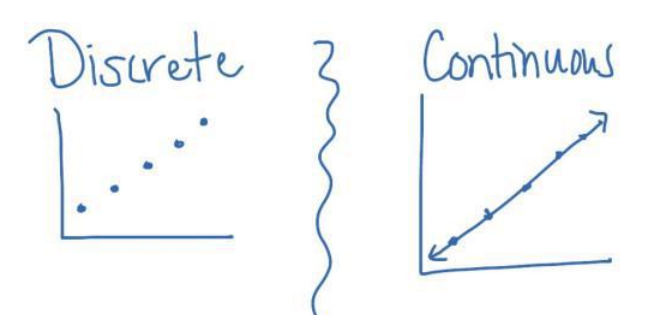 Discrete
Continuous